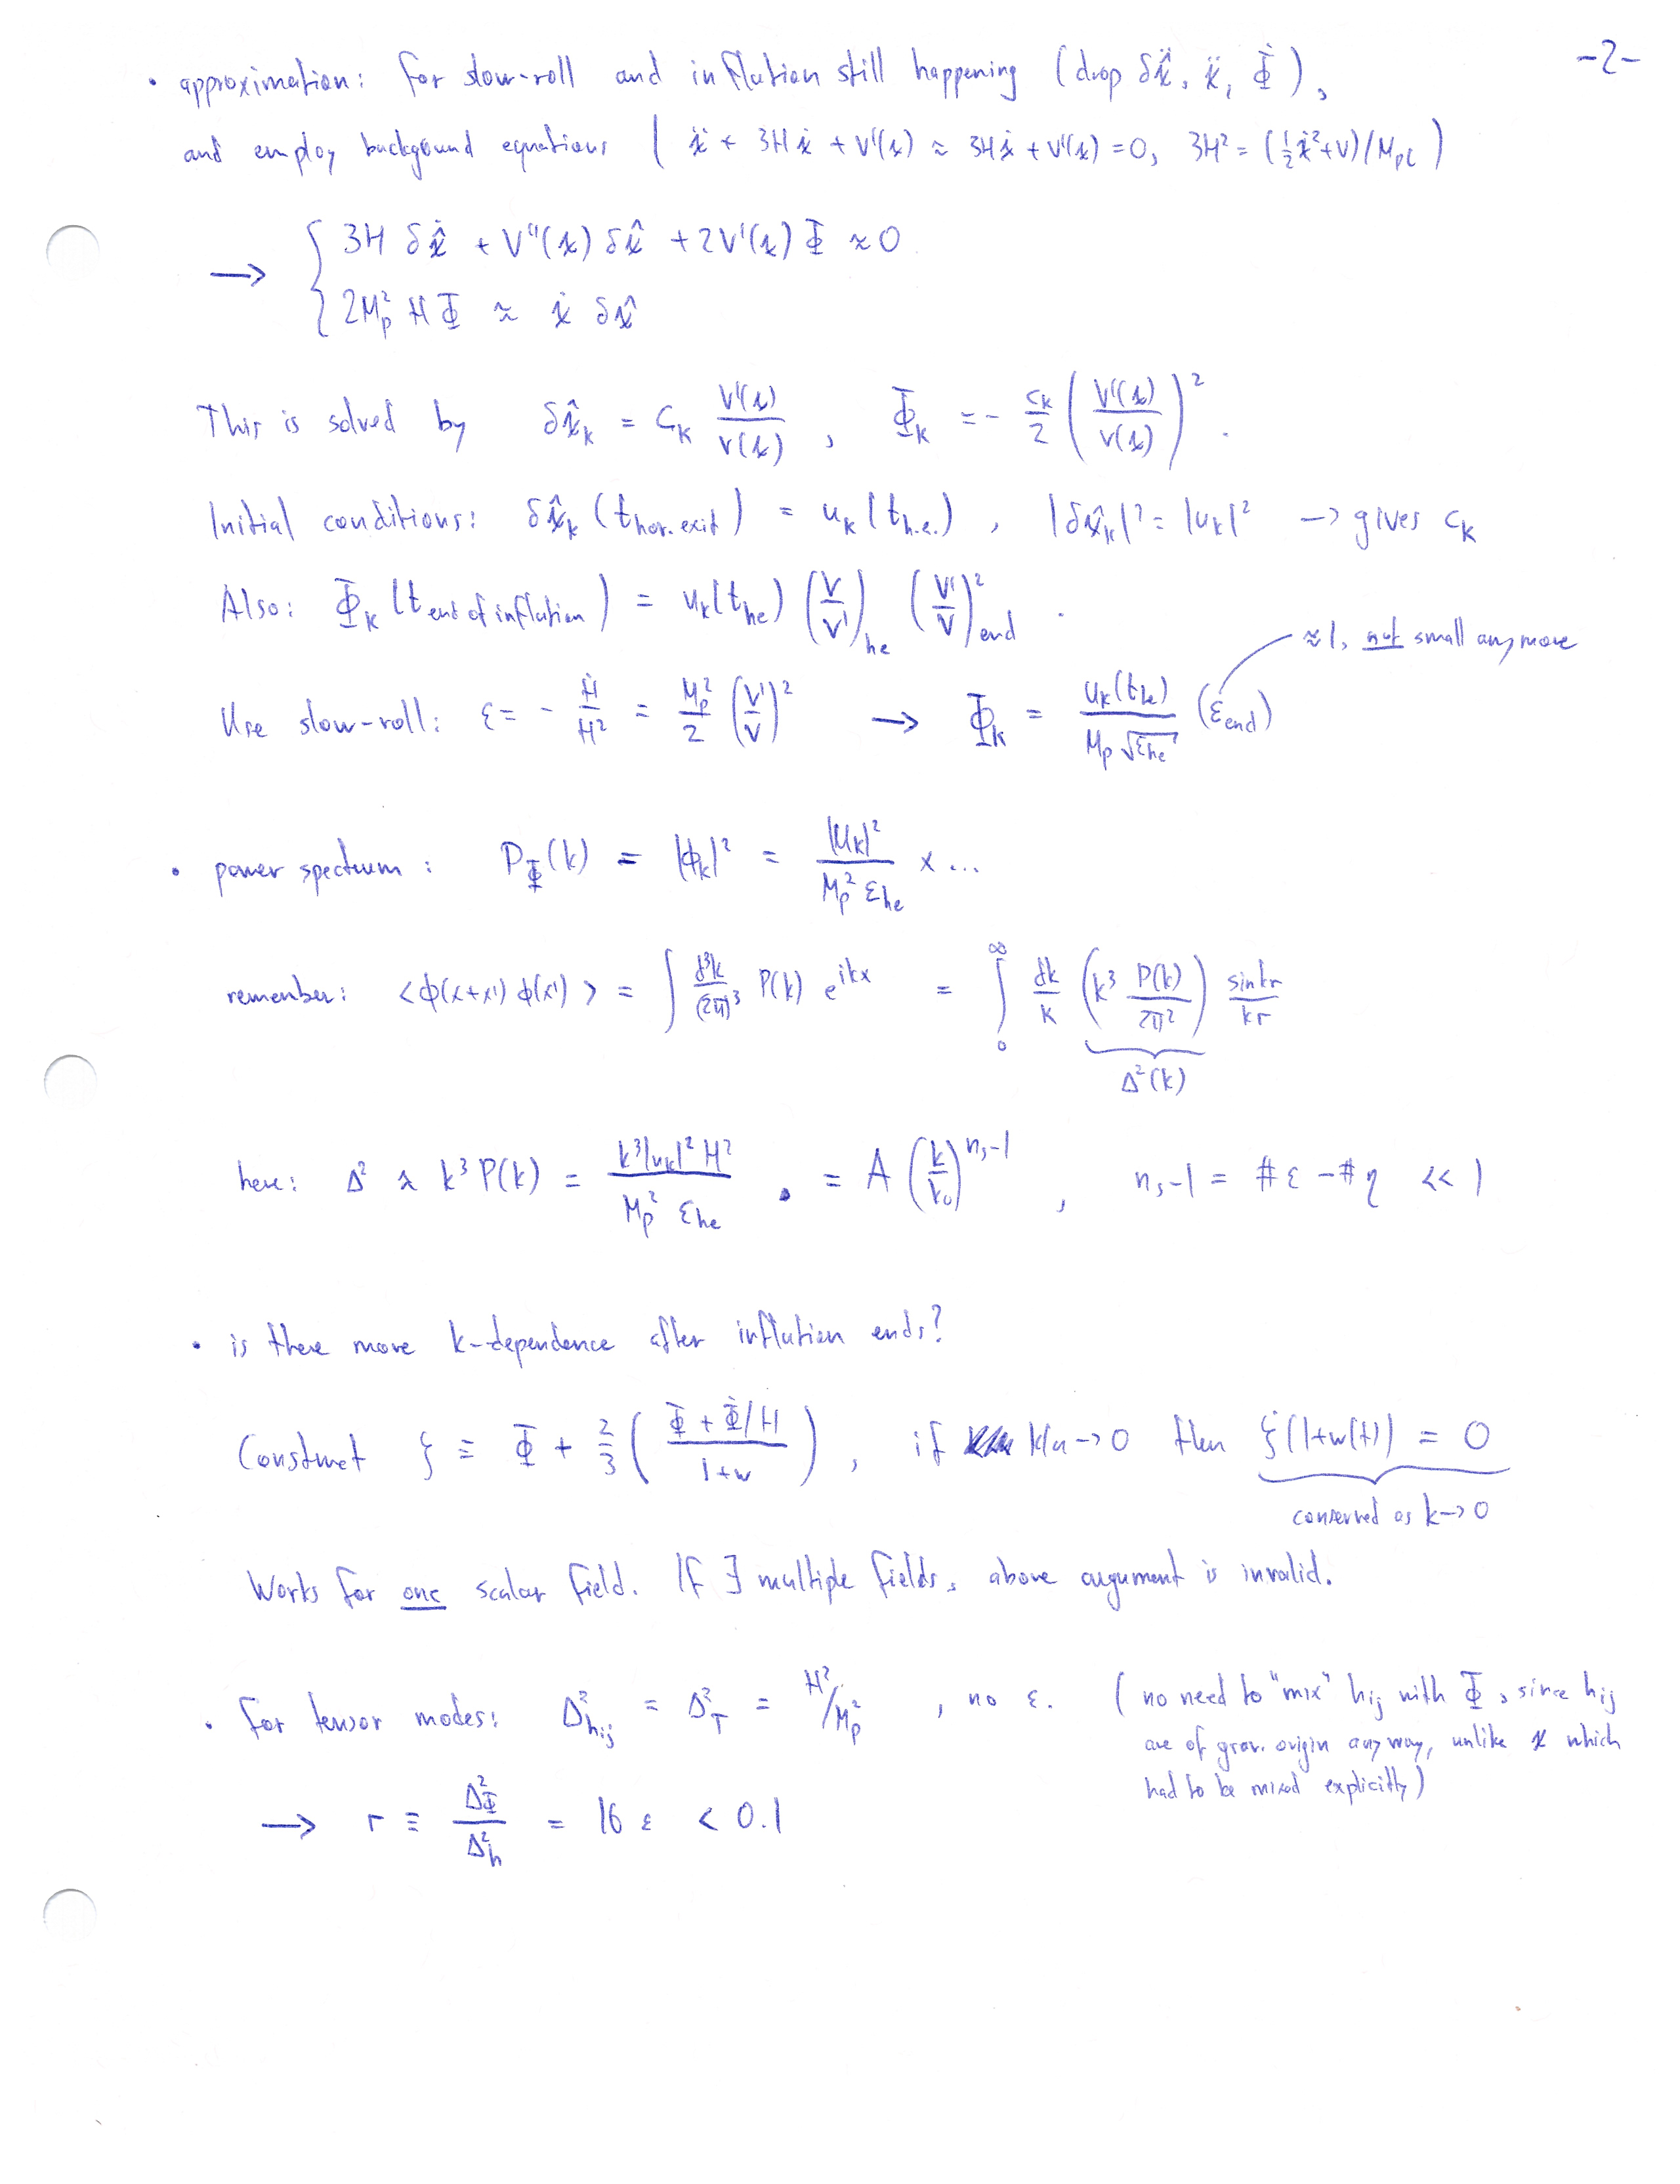 -2-
• approximation: for slow-roll and inflation still happening (drop δχ̂̈, χ̈, Φ̇),
and employ backgound equations ( χ̈ + 3Hχ̇ + V'(χ) ≈ 3Hχ̇ + V'(χ) = 0, 3H² = (½χ̇²+V)/Mpl )
→ { 3H δχ̂̇ + V''(χ) δχ̂ + 2V'(χ) Φ ≈ 0
2Mp² H Φ ≈ χ̇ δχ̂
This is solved by δχ̂k = Ck V'(χ)/V(χ) , Φk = - Ck/2 (V'(χ)/V(χ))² .
Initial conditions: δχ̂k (thor.exit) = uk(th.e.) , |δχ̂k|² = |uk|² → gives Ck
Also: Φk (tend of inflation) = uk(the) (V/V')he (V'/V)²end .
≈1, not small anymore
Use slow-roll: ε = - Ḣ/H² = Mp²/2 (V'/V)² → Φk = uk(the)/(Mp √εhe) (εend)
• power spectrum : PΦ(k) = |ϕk|² = |uk|²/(Mp² εhe) × ...
remember: <ϕ(x+x') ϕ(x')> = ∫ d³k/(2π)³ P(k) e^{ikx} = ∫₀^∞ dk/k (k³ P(k)/2π²) sinkr/kr
Δ²(k)
here: Δ² ≈ k³ P(k) = k³|uk|² H²/(Mp² εhe) . = A (k/k₀)^{ns-1} , ns-1 = #ε - #η << 1
• is there more k-dependence after inflation ends?
Construct ζ ≡ Φ + 2/3 ( (Φ + Φ̇/H)/(1+w) ) , if k/a → 0 then ζ̇(1+w(t)) = 0
conserved as k→0
Works for one scalar field. If ∃ multiple fields, above argument is invalid.
• for tensor modes: Δ²hij = Δ²T = H²/Mp² , no ε. ( no need to "mix" hij with Φ, since hij
are of grav. origin anyway, unlike χ which
had to be mixed explicitly)
→ r ≡ Δ²Φ/Δ²h = 16 ε < 0.1